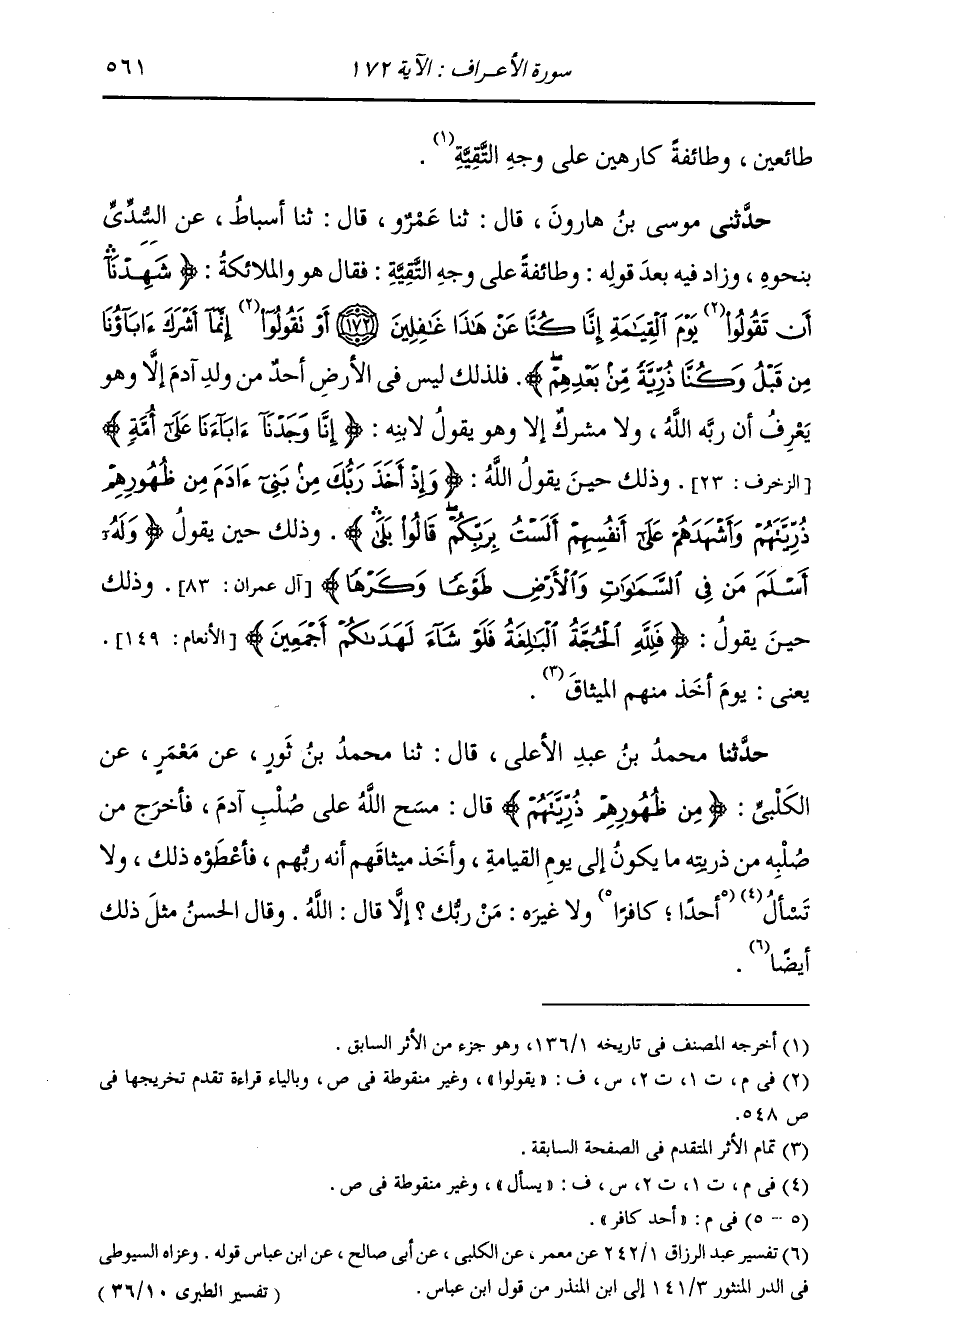 سورة الأعراف : الآية ١٧٢ ٥٦١
طائعين ، وطائفةً كارهين على وجهِ التَّقِيَّةِ(١) .
حدَّثنى موسى بنُ هارونَ ، قال : ثنا عَمْرٌو ، قال : ثنا أسباطُ ، عن السُّدِّىِّ
بنحوِه ، وزاد فيه بعدَ قولِه : وطائفةً على وجهِ التَّقِيَّةِ : فقال هو والملائكةُ : ﴿ شَهِدْنَآ
أَن تَقُولُوا(٢) يَوْمَ ٱلْقِيَـٰمَةِ إِنَّا كُنَّا عَنْ هَـٰذَا غَـٰفِلِينَ ﴿١٧٢﴾ أَوْ تَقُولُوٓا(٢) إِنَّمَآ أَشْرَكَ ءَابَآؤُنَا
مِن قَبْلُ وَكُنَّا ذُرِّيَّةً مِّنۢ بَعْدِهِمْ ﴾ . فلذلك ليس فى الأرضِ أحدٌ من ولدِ آدمَ إلَّا وهو
يَعْرِفُ أن ربَّه اللَّهُ ، ولا مشركٌ إلا وهو يقولُ لابنِه : ﴿ إِنَّا وَجَدْنَآ ءَابَآءَنَا عَلَىٰٓ أُمَّةٍ ﴾
[الزخرف : ٢٣] . وذلك حينَ يقولُ اللَّهُ : ﴿ وَإِذْ أَخَذَ رَبُّكَ مِنۢ بَنِىٓ ءَادَمَ مِن ظُهُورِهِمْ
ذُرِّيَّتَهُمْ وَأَشْهَدَهُمْ عَلَىٰٓ أَنفُسِهِمْ أَلَسْتُ بِرَبِّكُمْ قَالُوا۟ بَلَىٰ ﴾ . وذلك حين يقولُ ﴿ وَلَهُۥٓ
أَسْلَمَ مَن فِى ٱلسَّمَـٰوَٰتِ وَٱلْأَرْضِ طَوْعًا وَكَرْهًا ﴾ [آل عمران : ٨٣] . وذلك
حينَ يقولُ : ﴿ فَلِلَّهِ ٱلْحُجَّةُ ٱلْبَـٰلِغَةُ فَلَوْ شَآءَ لَهَدَىٰكُمْ أَجْمَعِينَ ﴾ [الأنعام : ١٤٩] .
يعنى : يومَ أخَذ منهم الميثاقَ(٣) .
حدَّثنا محمدُ بنُ عبدِ الأعلى ، قال : ثنا محمدُ بنُ ثَورٍ ، عن مَعْمَرٍ ، عن
الكَلْبىِّ : ﴿ مِن ظُهُورِهِمْ ذُرِّيَّتَهُمْ ﴾ قال : مسَح اللَّهُ على صُلْبِ آدمَ ، فأخرَج من
صُلْبِه من ذريتِه ما يكونُ إلى يومِ القيامةِ ، وأخَذ ميثاقَهم أنه ربُّهم ، فأعْطَوْه ذلك ، ولا
تَسْألُ(٤) (٥أحدًا ؛ كافرًا٥) ولا غيرَه : مَنْ ربُّك ؟ إلَّا قال : اللَّهُ . وقال الحسنُ مثلَ ذلك
أيضًا(٦) .
(١) أخرجه المصنف فى تاريخه ١٣٦/١، وهو جزء من الأثر السابق .
(٢) فى م، ت ١، ت ٢، س، ف : «يقولوا» ، وغير منقوطة فى ص ، وبالياء قراءة تقدم تخريجها فى
ص ٥٤٨.
(٣) تمام الأثر المتقدم فى الصفحة السابقة .
(٤) فى م، ت ١، ت ٢، س ، ف : «يسأل» ، وغير منقوطة فى ص .
(٥ - ٥) فى م : «أحد كافر» .
(٦) تفسير عبد الرزاق ٢٤٢/١ عن معمر ، عن الكلبى ، عن أبى صالح ، عن ابن عباس قوله . وعزاه السيوطى
فى الدر المنثور ١٤١/٣ إلى ابن المنذر من قول ابن عباس . ( تفسير الطبرى ٣٦/١٠ )